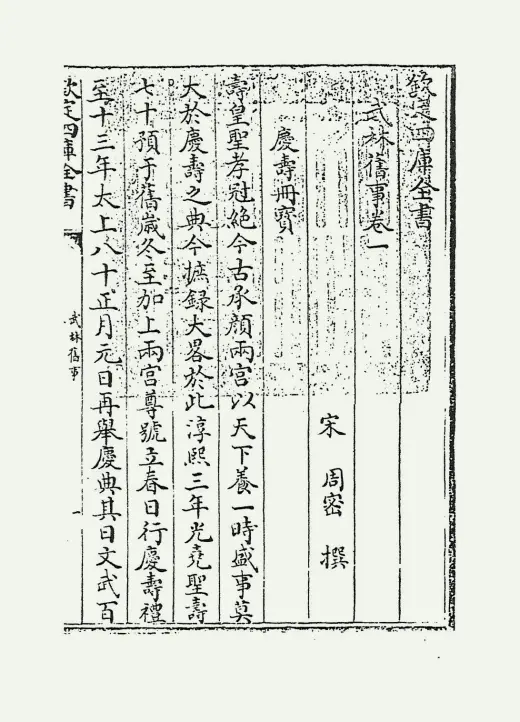 欽定四庫全書
武林舊事卷一
宋 周密 撰
慶壽冊寳
壽皇聖孝冠絶今古承顔兩宮以天下養一時盛事莫
大於慶壽之典今摭錄大畧於此淳熙三年光堯聖壽
七十預于舊嵗冬至加上兩宮尊號立春日行慶壽禮
至十三年太上八十正月元日再舉慶典其日文武百
欽定四庫全書
武林舊事
一